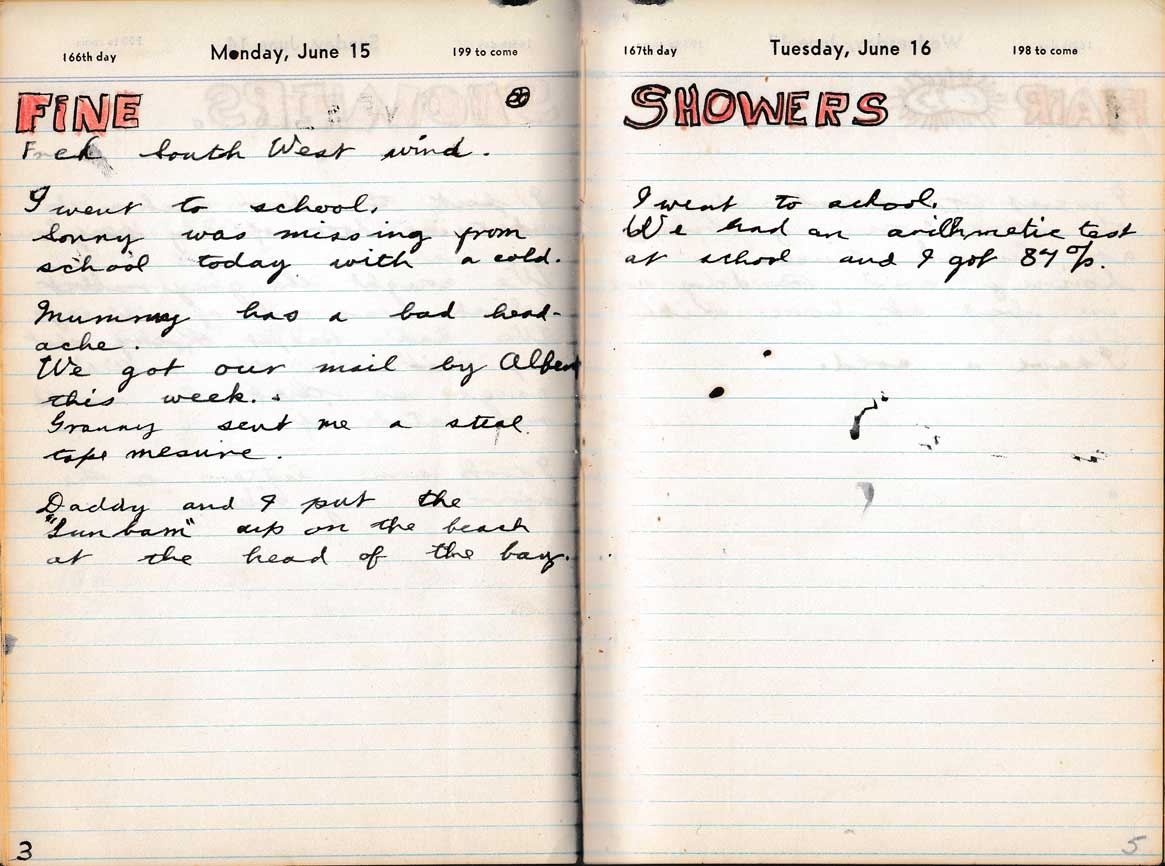 166th day Monday, June 15 199 to come
FINE
South West wind.
I went to school.
Sonny was missing from
school today with a cold.
Mummy has a bad head-
ache.
We got our mail by Albert
this week.
Granny sent me a steal
tape mesure.
Daddy and I put the
"Sunbam" up on the beach
at the head of the bay.
3
167th day Tuesday, June 16 198 to come
SHOWERS
I went to school.
We had an arithmetic test
at school and I got 84%.
5